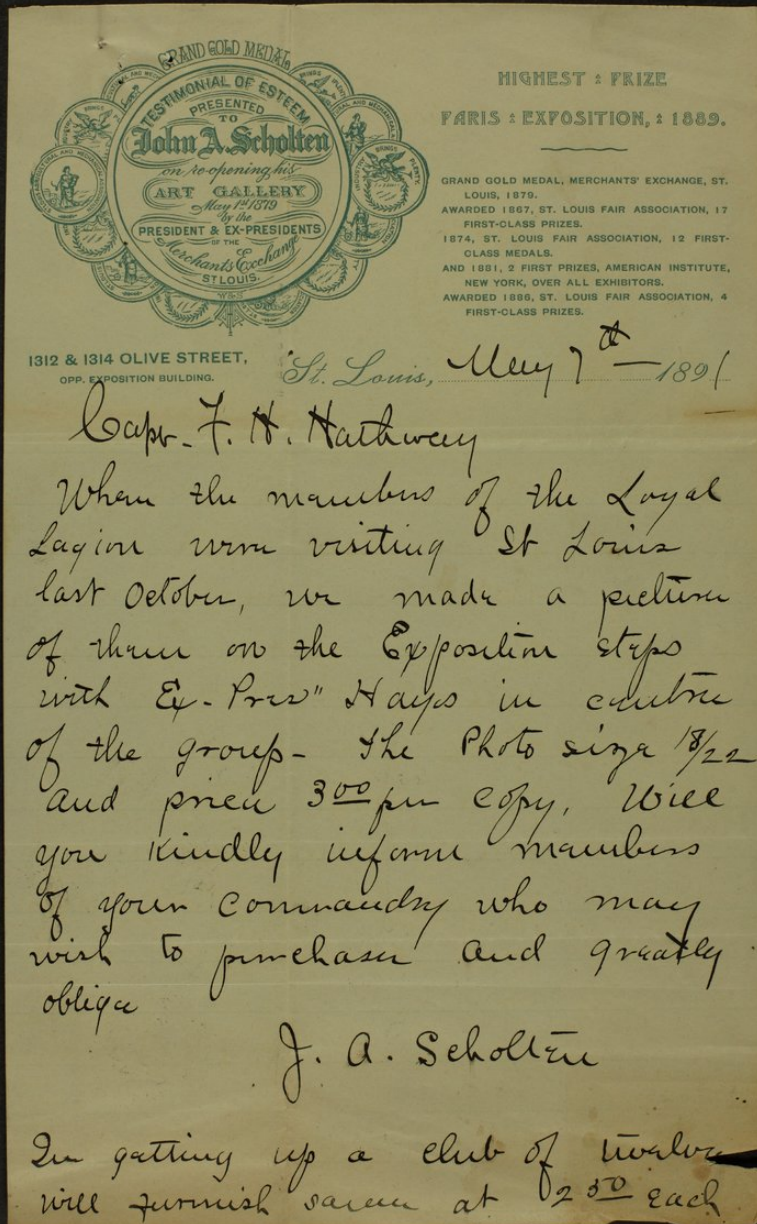 GRAND GOLD MEDAL
TESTIMONIAL OF ESTEEM
PRESENTED
TO
John A. Scholten
on re-opening his
ART GALLERY
May 1st 1879
by the
PRESIDENT & EX-PRESIDENTS
OF THE
Merchants Exchange
ST LOUIS.
HIGHEST : PRIZE
PARIS : EXPOSITION, : 1889.
GRAND GOLD MEDAL, MERCHANTS' EXCHANGE, ST.
LOUIS, 1879.
AWARDED 1867, ST. LOUIS FAIR ASSOCIATION, 17
FIRST-CLASS PRIZES.
1874, ST. LOUIS FAIR ASSOCIATION, 12 FIRST-
CLASS MEDALS.
AND 1881, 2 FIRST PRIZES, AMERICAN INSTITUTE,
NEW YORK, OVER ALL EXHIBITORS.
AWARDED 1886, ST. LOUIS FAIR ASSOCIATION, 4
FIRST-CLASS PRIZES.
1312 & 1314 OLIVE STREET,
OPP. EXPOSITION BUILDING.
St. Louis, May 7th 1891
Capt. F. H. Hathway
When the members of the Loyal
Legion were visiting St Louis
last October, we made a picture
of them on the Exposition steps
with Ex-Pres" Hays in centre
of the group - The Photo size 18/22
and price 3 00 per copy, Will
you kindly inform members
of your commandry who may
wish to purchase and greatly
oblige
J. A. Scholten
In getting up a club of twelve
will furnish same at 2 50 each